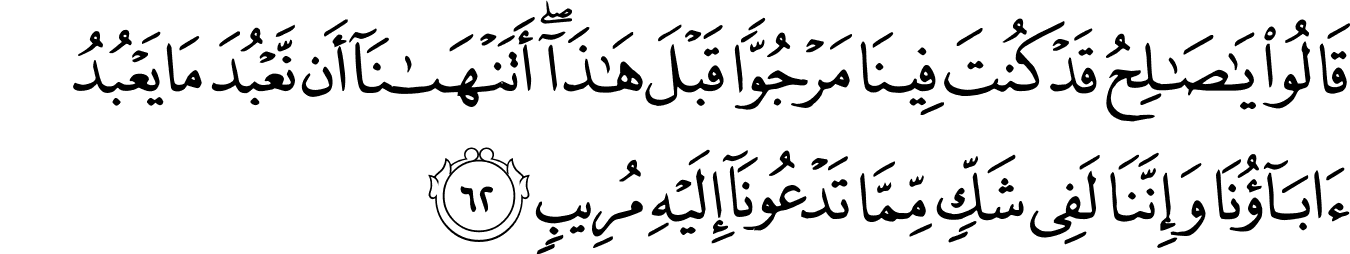 قَالُوا۟ يَـٰصَـٰلِحُ قَدْ كُنتَ فِينَا مَرْجُوًّا قَبْلَ هَـٰذَآ ۖ أَتَنْهَىٰنَآ أَن نَّعْبُدَ مَا يَعْبُدُ
ءَابَآؤُنَا وَإِنَّنَا لَفِى شَكٍّ مِّمَّا تَدْعُونَآ إِلَيْهِ مُرِيبٍ ٦٢